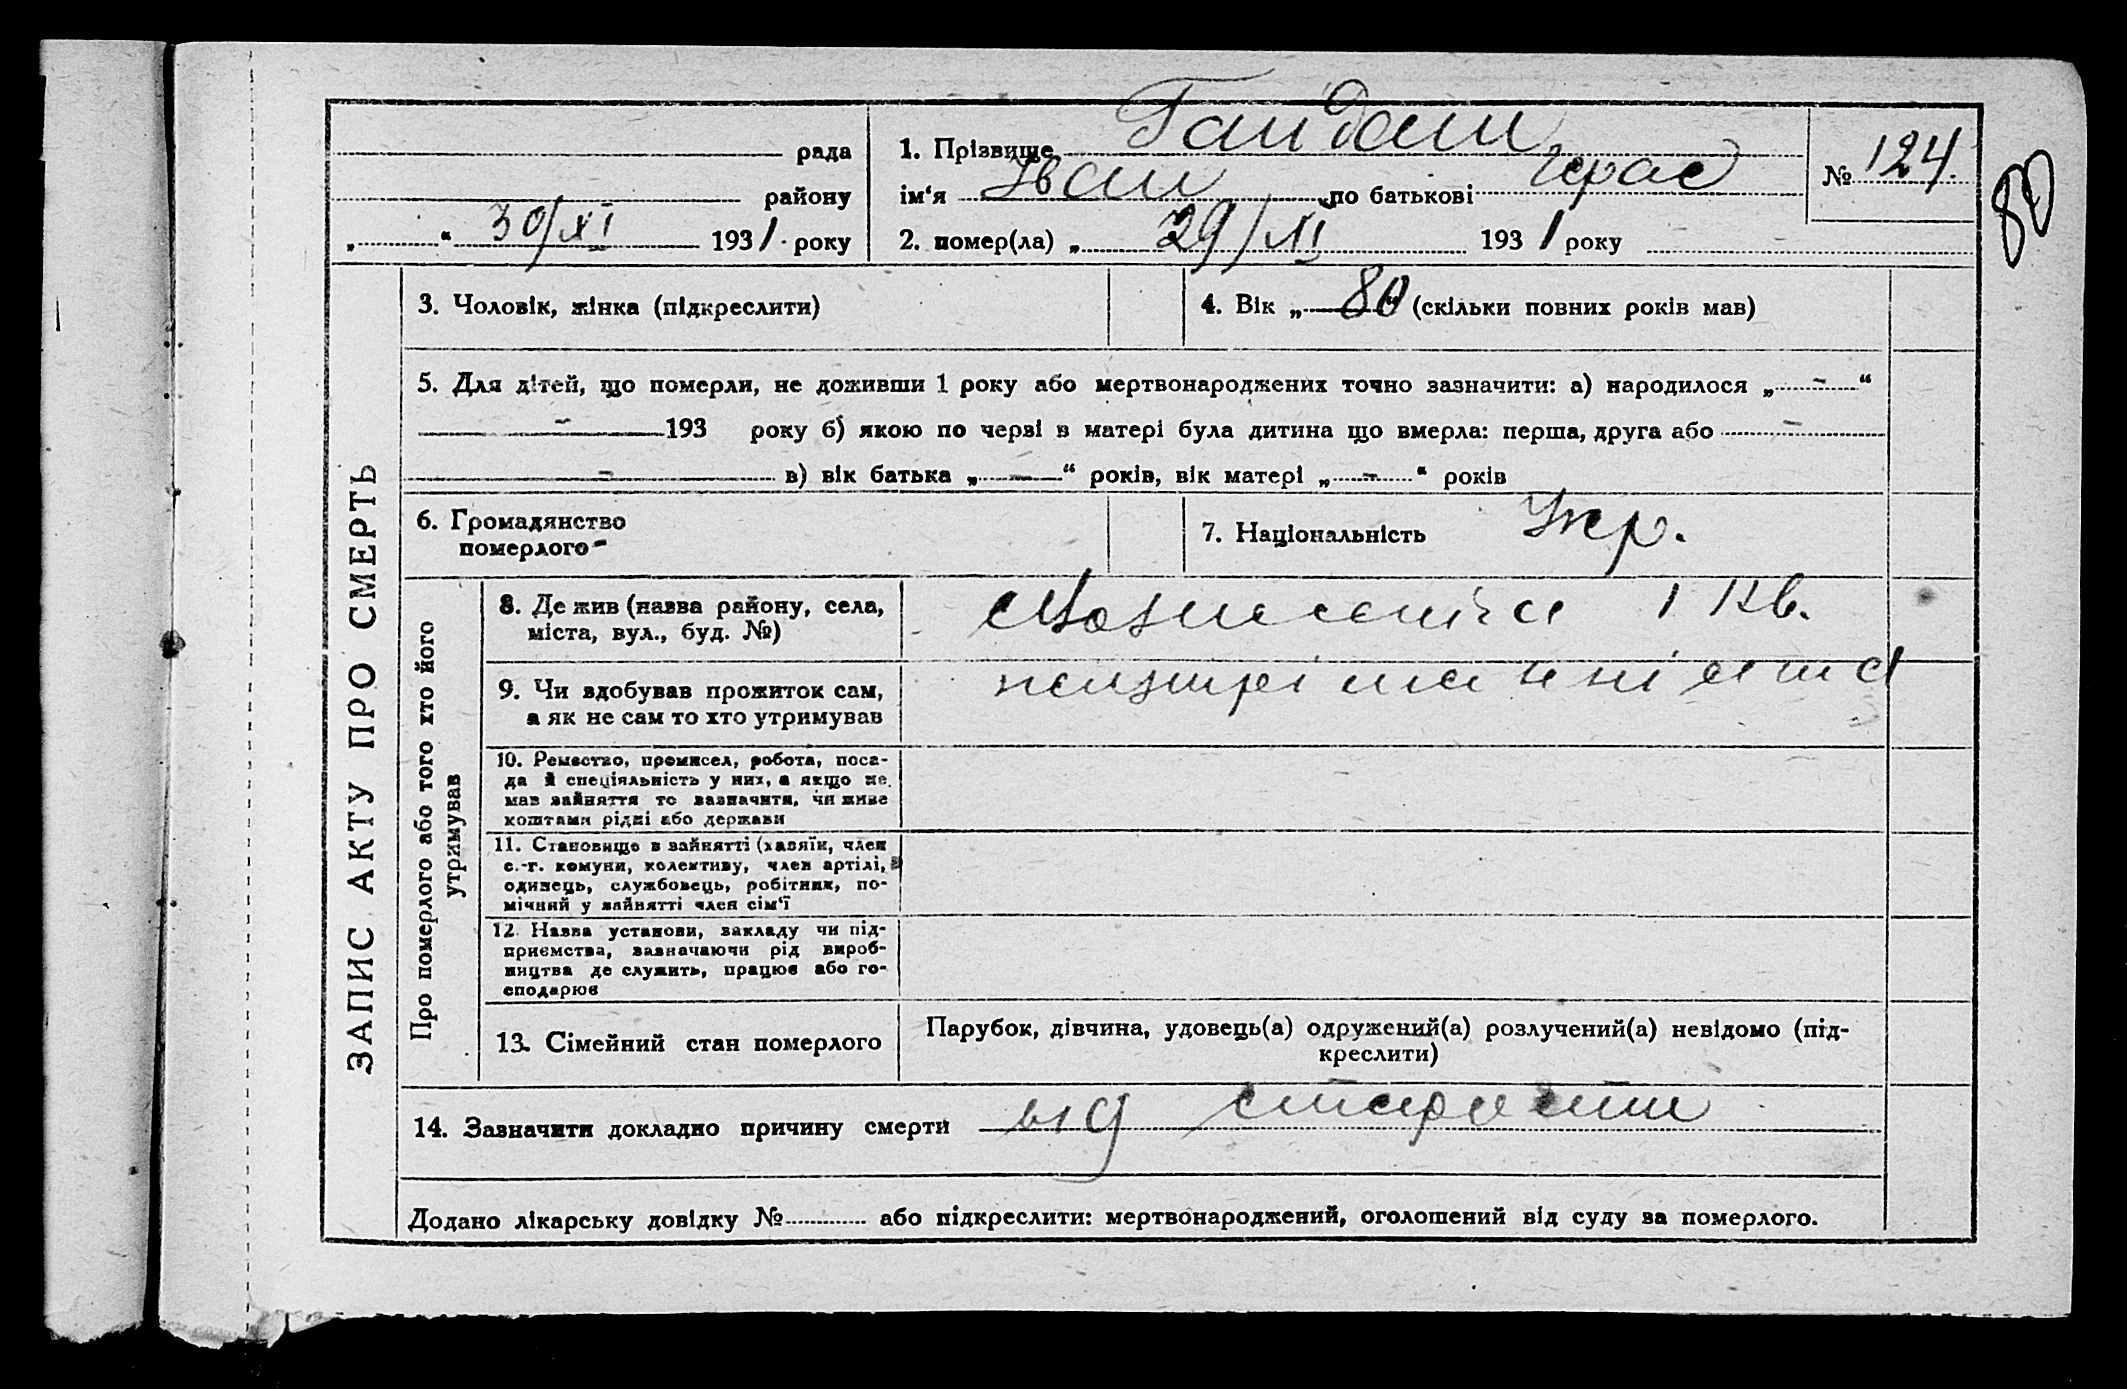 рада
району
„ “ 30/XI 1931 року
1. Прізвище Гайдаш
ім‘я Іван по батькові Герас
2. помер(ла) „ 29/XI 1931 року
№ 124.
80
ЗАПИС АКТУ ПРО СМЕРТЬ
3. Чоловік, жінка (підкреслити)
4. Вік „ 80 “ (скільки повних років мав)
5. Для дітей, що померли, не доживши 1 року або мертвонароджених точно зазначити: а) народилося „ - “
- 193 року б) якою по черзі в матері була дитина що вмерла: перша, друга або -
- в) вік батька „ - “ років, вік матері „ - “ років
6. Громадянство
померлого -
7. Національність Укр.
Про померлого або того хто його
утримував
8. Де жив (назва району, села,
міста, вул., буд. №)
1 кв.
9. Чи здобував прожиток сам,
а як не сам то хто утримував
10. Ремество, промисел, робота, поса-
да й спеціяльність у них, а якщо не
мав зайняття то зазначити, чи живе
коштами рідні або держави
11. Становище в зайнятті (хазяїн, член
с.-г. комуни, колективу, член артілі,
одинець, службовець, робітник, по-
мічний у зайнятті член сім‘ї
12. Назва установи, закладу чи під-
приємства, зазначаючи рід вироб-
ництва де служить, працює або го-
сподарює
13. Сімейний стан померлого
Парубок, дівчина, удовець(а) одружений(а) розлучений(а) невідомо (під-
креслити)
14. Зазначити докладно причину смерти від старости
Додано лікарську довідку № або підкреслити: мертвонароджений, оголошений від суду за померлого.